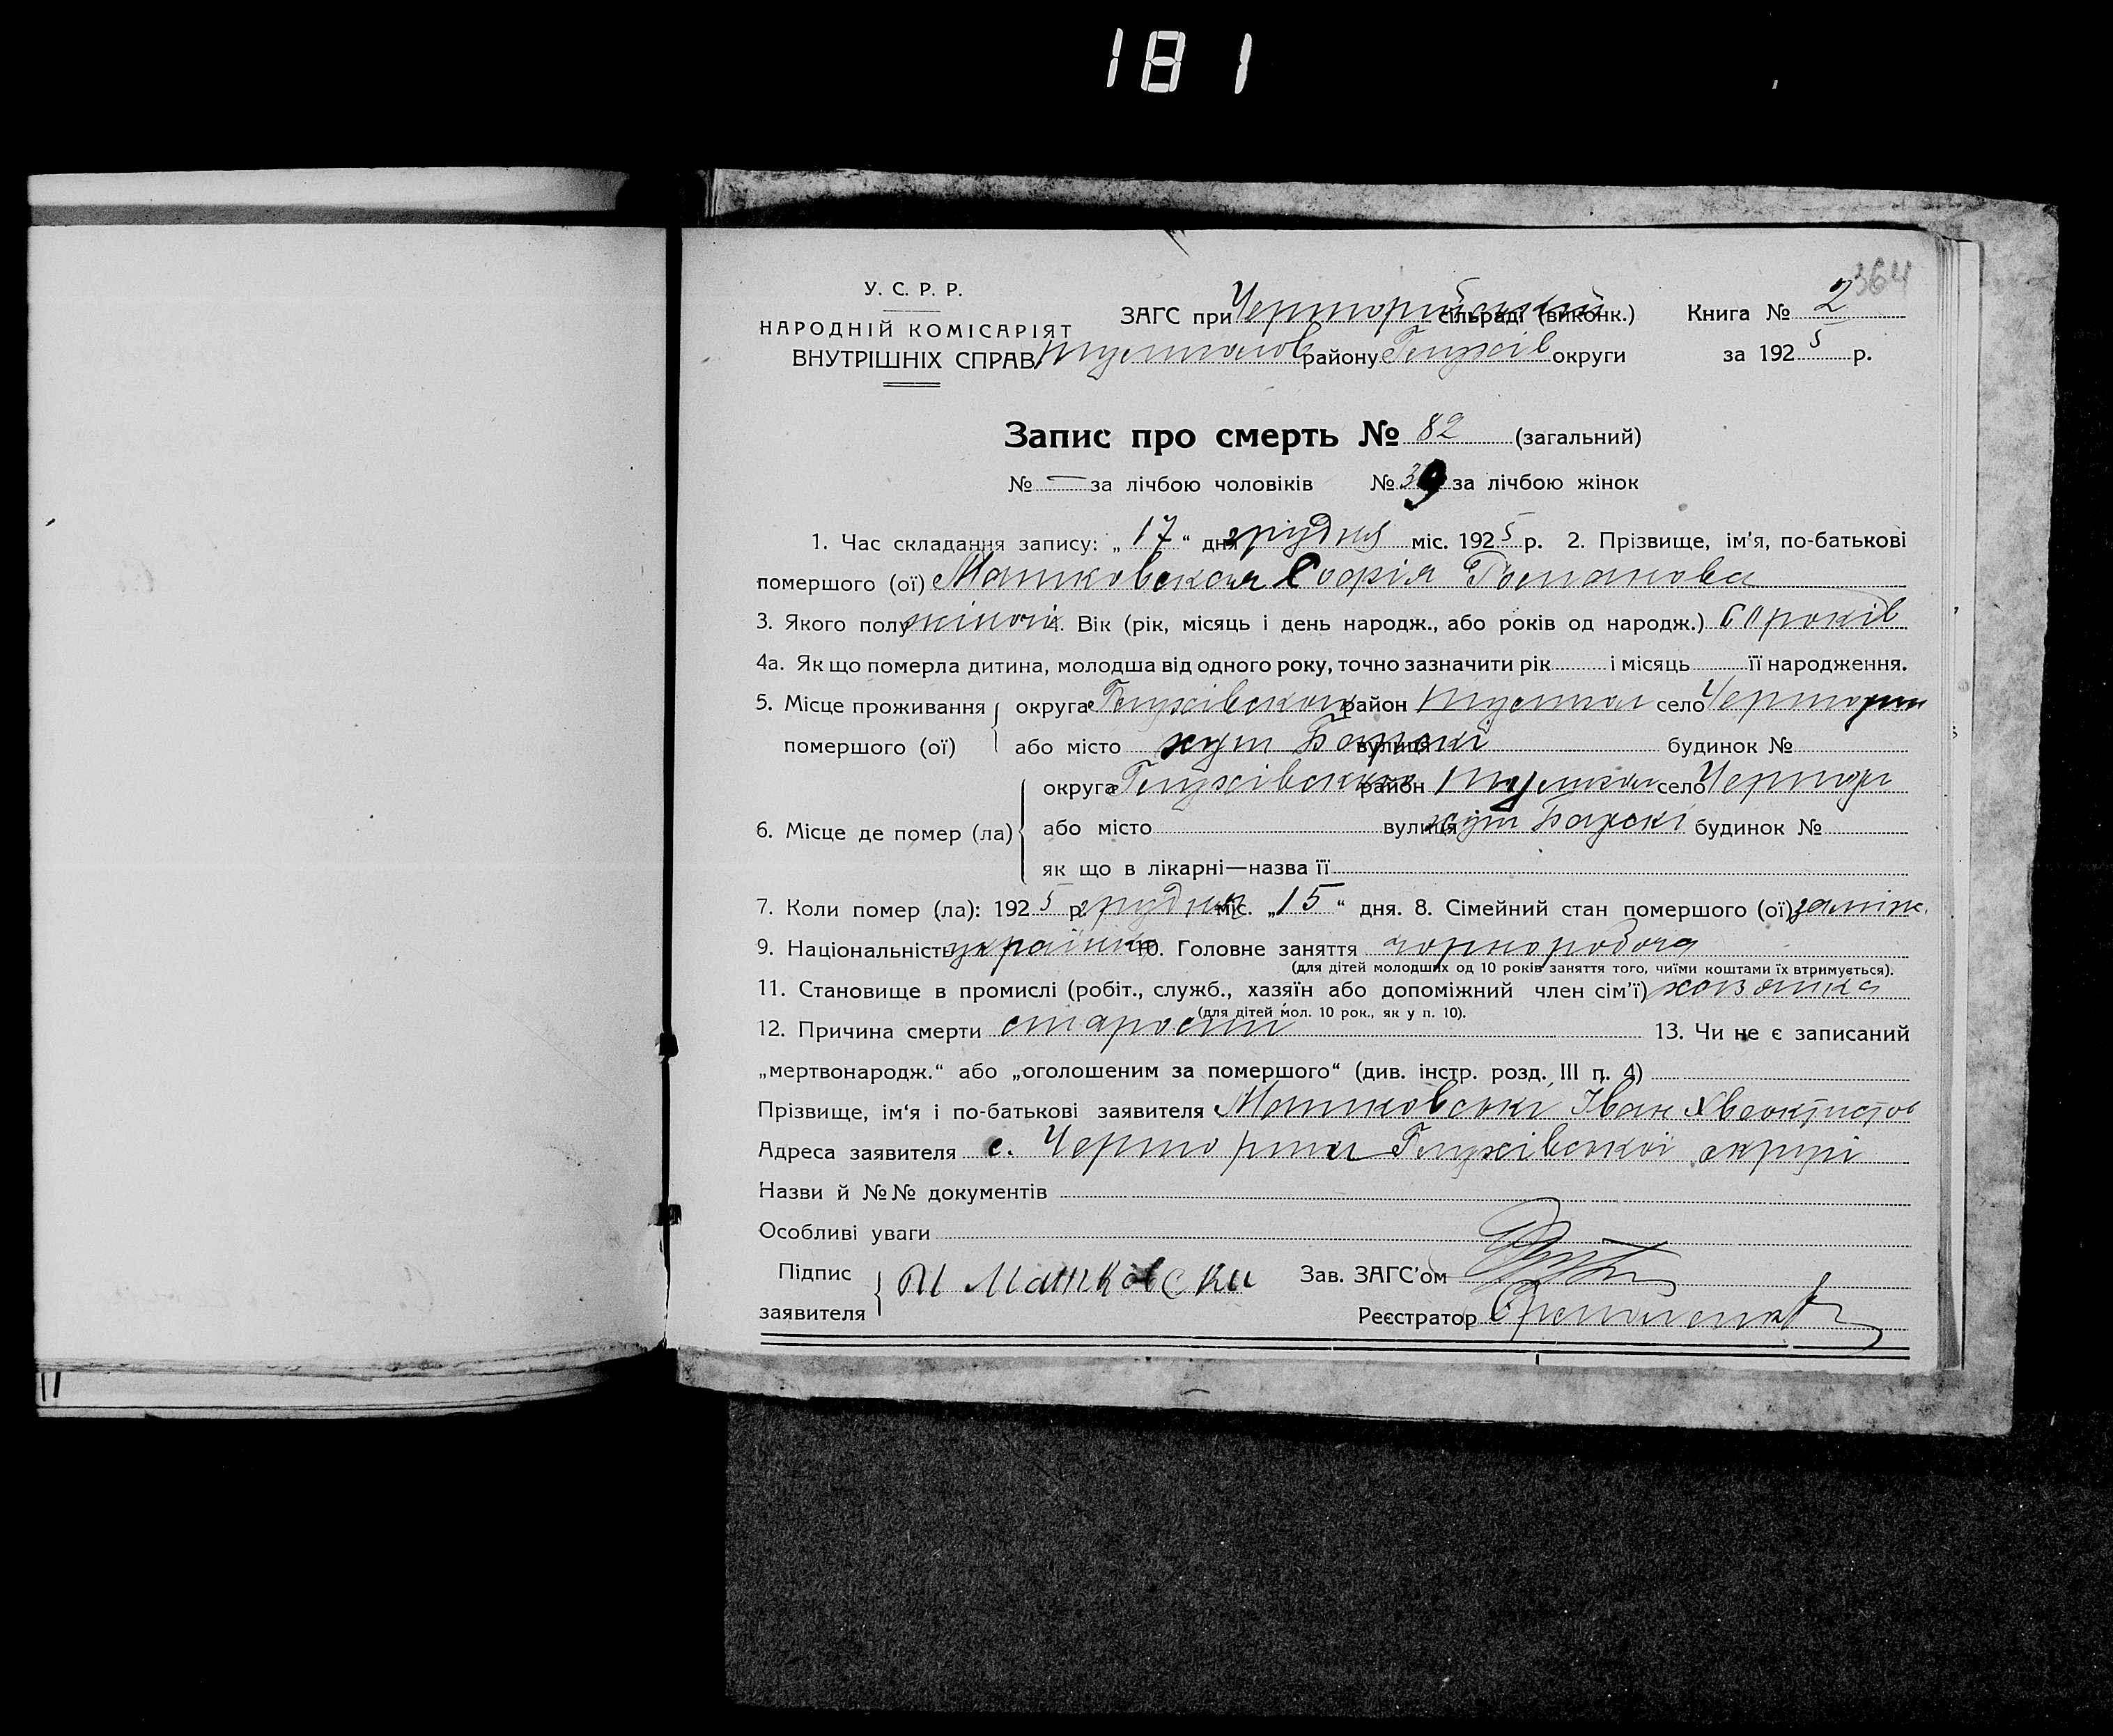 181
364
У. С. Р. Р.
НАРОДНІЙ КОМІСАРІЯТ
ВНУТРІШНІХ СПРАВ
ЗАГС при Чернорийський сільраді (виконк.)
району Глухів округи
Книга № 2
за 1925 р.
Запис про смерть № 82 (загальний)
№ — за лічбою чоловіків № 39 за лічбою жінок
1. Час складання запису: „17“ дня грудня міс. 1925 р. 2. Прізвище, ім'я, по-батькові
помершого (ої) Машковская Софія Романова
3. Якого полу жіночі 4. Вік (рік, місяць і день народж., або років од народж.) 60 років
4а. Як що померла дитина, молодша від одного року, точно зазначити рік і місяць її народження.
5. Місце проживання округа Глухівском район село
помершого (ої) або місто хут вулиця будинок №
округа Глухівском район село
6. Місце де помер (ла) або місто вулиця хут будинок №
як що в лікарні—назва її
7. Коли помер (ла): 1925 р. грудня міс. „15“ дня. 8. Сімейний стан помершого (ої) заміж.
9. Національність українка 10. Головне заняття чорноробоча
(для дітей молодших од 10 років заняття того, чиїми коштами їх втримується).
11. Становище в промислі (робіт., служб., хазяїн або допоміжний член сім'ї) хозяйка
(для дітей мол. 10 рок., як у п. 10).
12. Причина смерти старости 13. Чи не є записаний
„мертвонародж.“ або „оголошеним за помершого“ (див. інстр. розд. III п. 4)
Прізвище, ім'я і по-батькові заявителя Машковскі Іван Хвеоктистов
Адреса заявителя с. Глухівської округи
Назви й №№ документів
Особливі уваги
Підпис
заявителя Машковски
Зав. ЗАГС'ом
Реєстратор